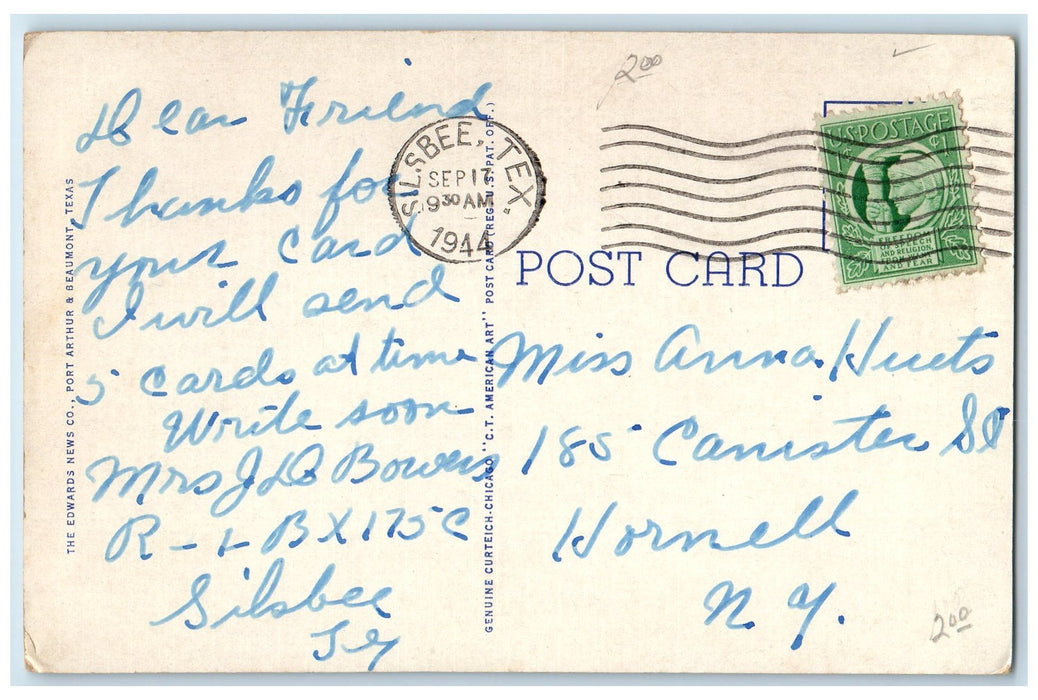 Dear Friend
Thanks for
your Card
I will send
5 Cards at time
Write soon
Mrs J D Bowers
R - 1 - BX 175 C
Silsbee
Tex
THE EDWARDS NEWS CO., PORT ARTHUR & BEAUMONT, TEXAS
GENUINE CURTEICH-CHICAGO "C.T. AMERICAN ART" POST CARD (REG. U.S. PAT. OFF.)
SILSBEE, TEX.
SEP 17
9 30 AM
1944
2 00
U.S. POSTAGE
1 ¢
FREEDOM
OF SPEECH
AND RELIGION,
FROM WANT
AND FEAR
POST CARD
Miss Anna Huets
185 Canister St
Hornell
N. Y.
2 00